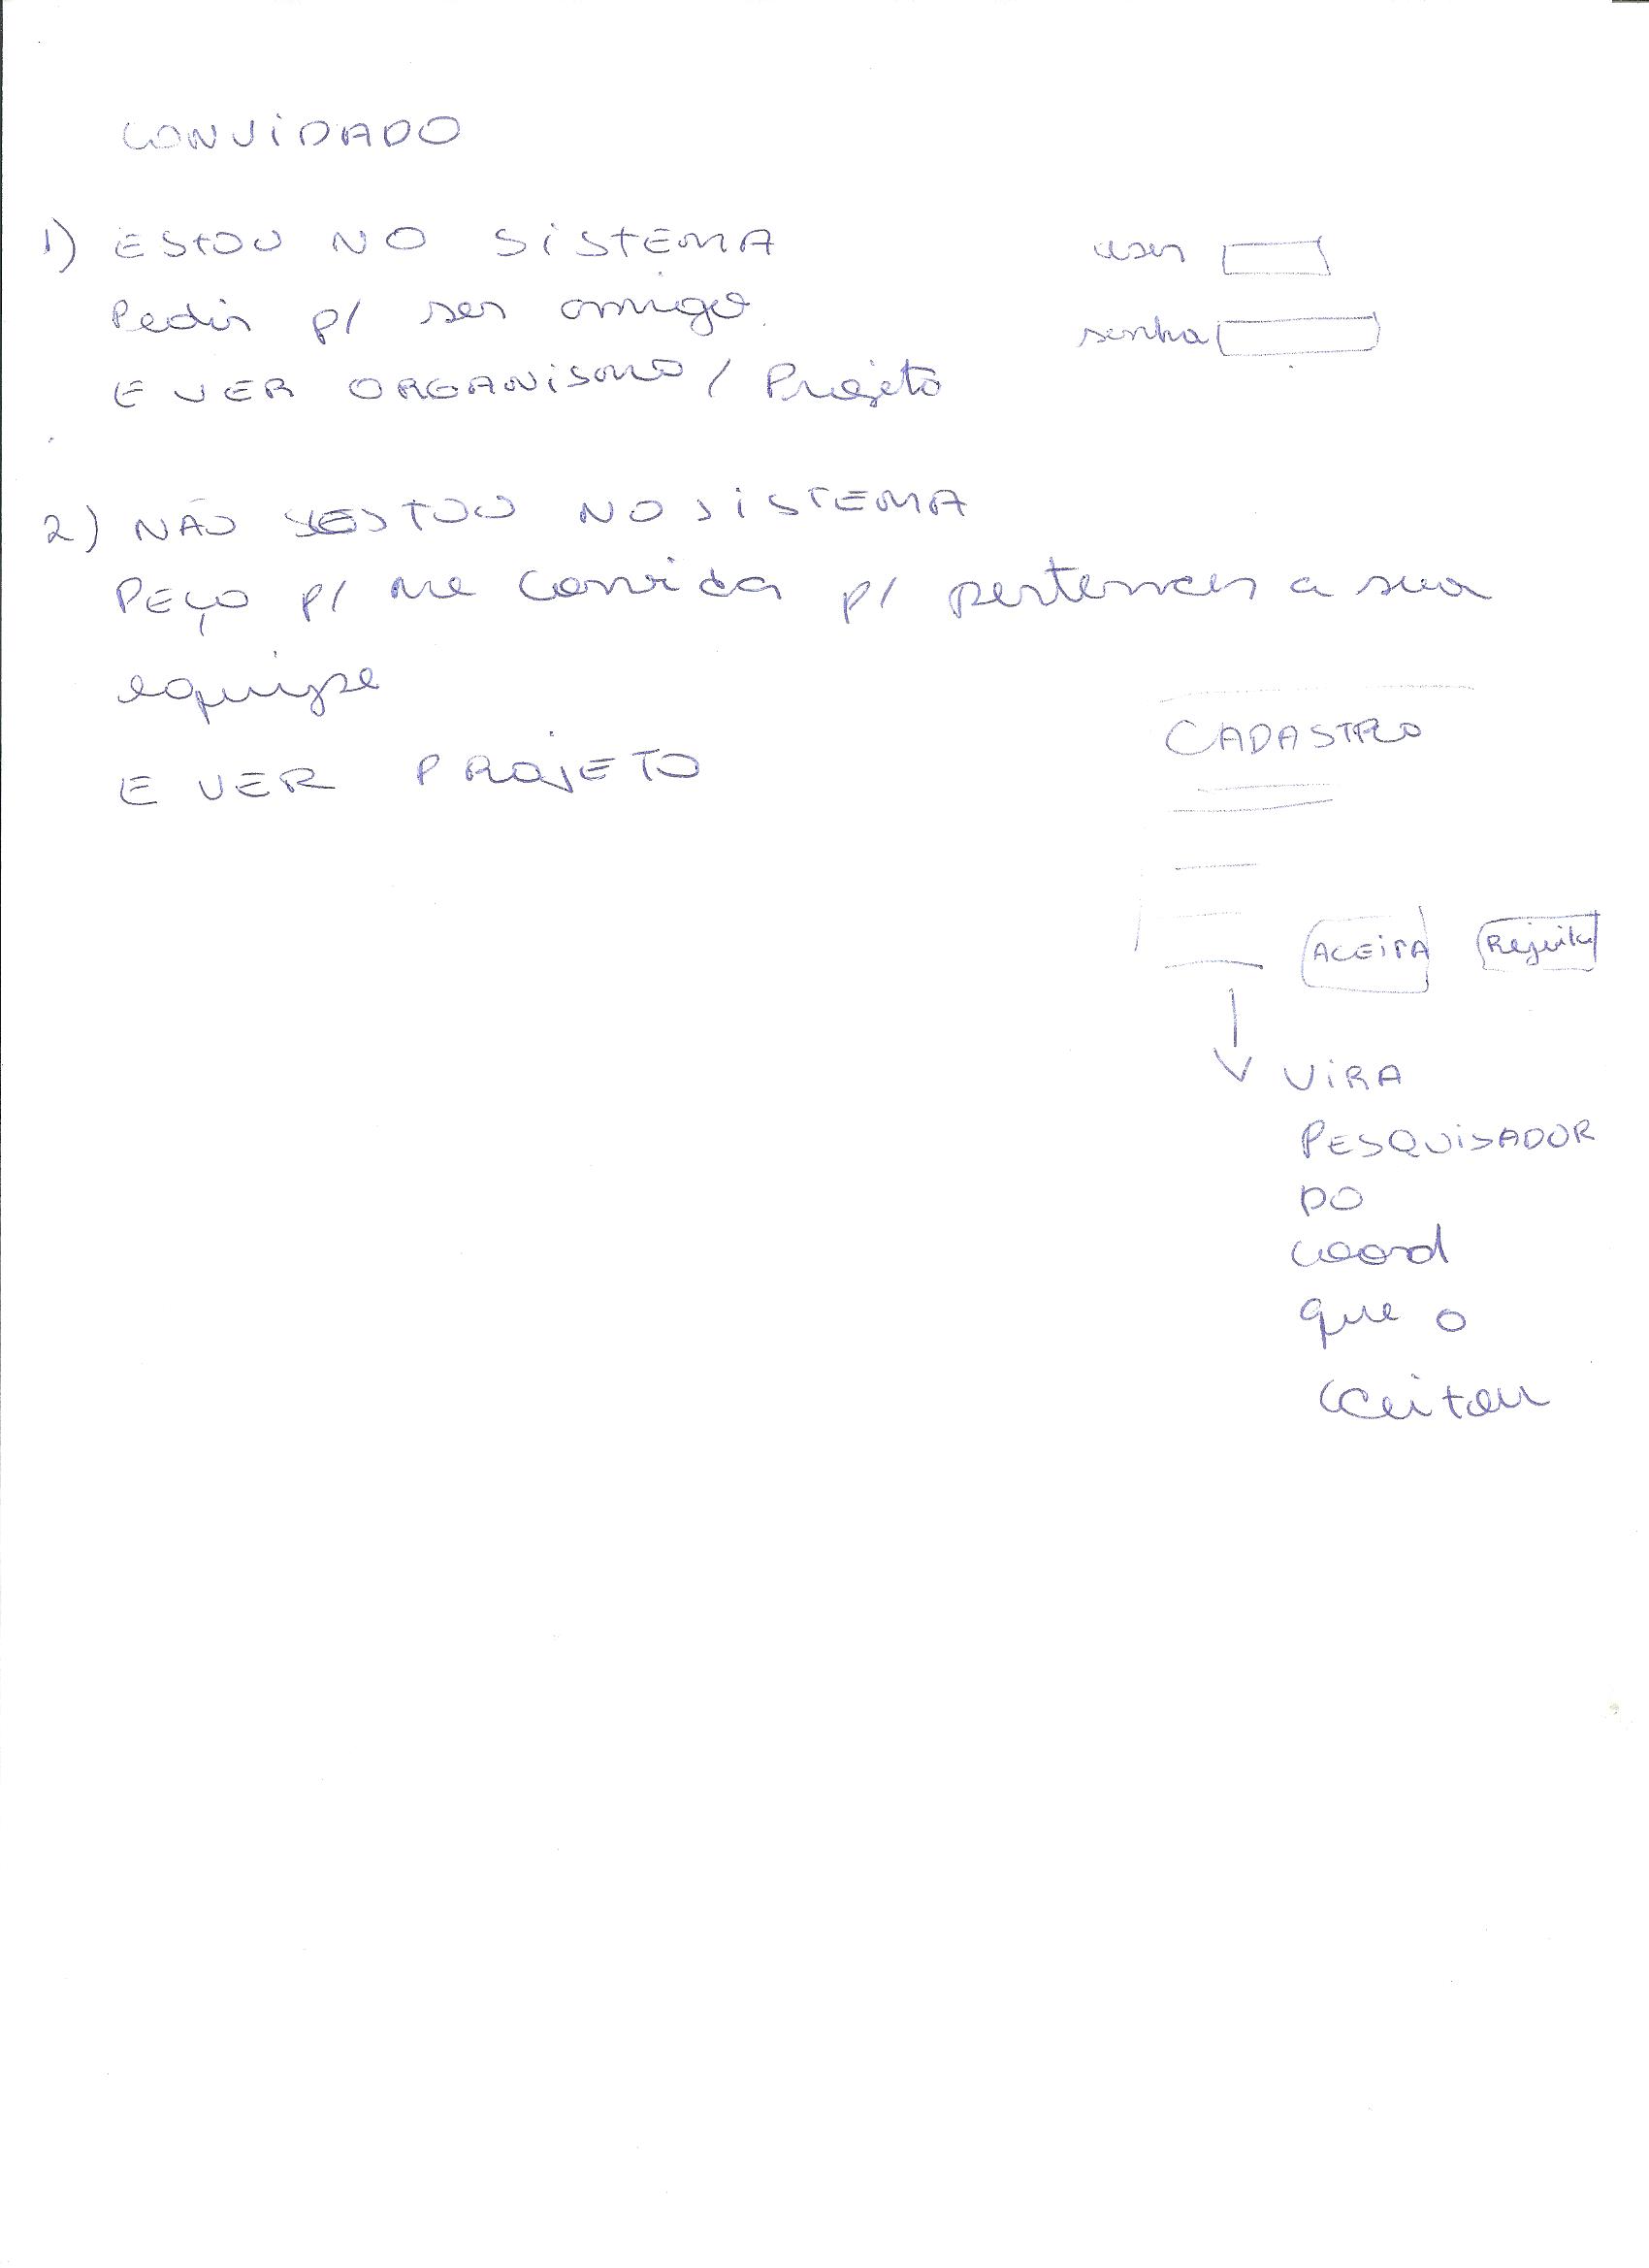 CONVIDADO
1) ESTOU NO SISTEMA
Pedir p/ ser amigo
E VER ORGANISMO / Projeto
user
senha
2) NÃO ESTOU NO SISTEMA
PEÇO p/ me convidar p/ pertencer a sua
equipe
E VER PROJETO
CADASTRO
ACEITA Rejeita
VIRA
PESQUISADOR
DO
coord
que o
aceitou